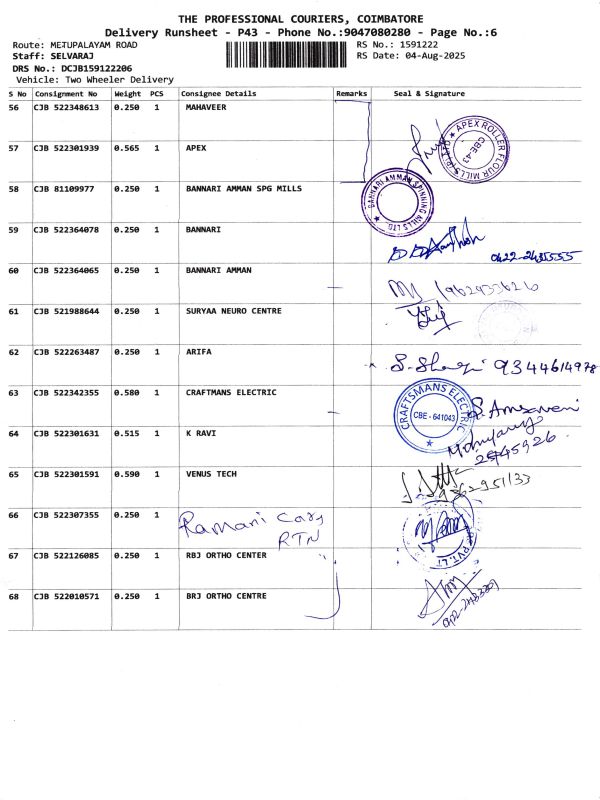 THE PROFESSIONAL COURIERS, COIMBATORE
Delivery Runsheet - P43 - Phone No.:9047080280 - Page No.:6
Route: METUPALAYAM ROAD RS No.: 1591222
Staff: SELVARAJ RS Date: 04-Aug-2025
DRS No.: DCJB159122206
Vehicle: Two Wheeler Delivery
S No Consignment No Weight PCS Consignee Details Remarks Seal & Signature
56 CJB 522348613 0.250 1 MAHAVEER
57 CJB 522301939 0.565 1 APEX
APEX ROLLER FLOUR MILLS CBE-43
58 CJB 81109977 0.250 1 BANNARI AMMAN SPG MILLS
BANNARI AMMAN SPINNING MILLS LTD.
59 CJB 522364078 0.250 1 BANNARI
0422-2435555
60 CJB 522364065 0.250 1 BANNARI AMMAN
9629335626
61 CJB 521988644 0.250 1 SURYAA NEURO CENTRE
62 CJB 522263487 0.250 1 ARIFA
9344614978
63 CJB 522342355 0.580 1 CRAFTMANS ELECTRIC
CRAFTSMANS ELECTRIC CBE - 641043
64 CJB 522301631 0.515 1 K RAVI
65 CJB 522301591 0.590 1 VENUS TECH
66 CJB 522307355 0.250 1 Ramani Cars
RTN
PVT. LT
67 CJB 522126085 0.250 1 RBJ ORTHO CENTER
68 CJB 522010571 0.250 1 BRJ ORTHO CENTRE